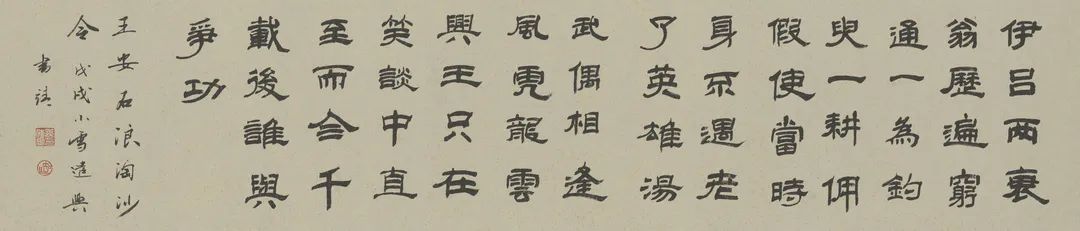 伊呂兩衰
翁歷遍窮
通一為釣
叟一耕佣
假使當時
身不遇老
了英雄湯
武偶相逢
風虎龍雲
興王只在
笑談中直
至而今千
載後誰與
爭功
王安石浪淘沙
令戊戌小雪遣興
書